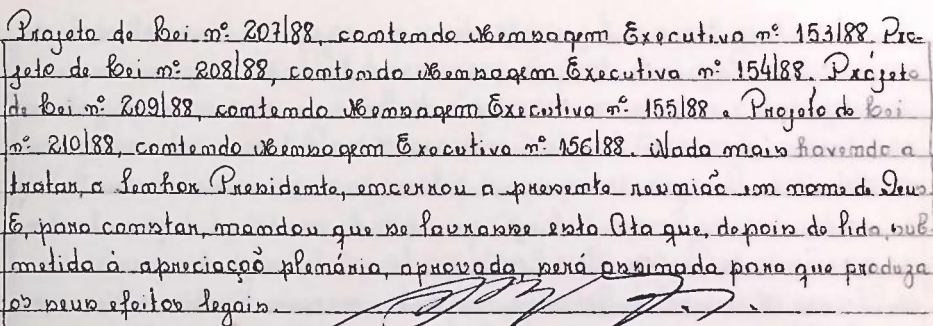 Projeto de Lei nº 207/88, contendo Mensagem Executiva nº 153/88. Pro-
jeto de Lei nº 208/88, contendo Mensagem Executiva nº 154/88. Projeto
de Lei nº 209/88, contendo Mensagem Executiva nº 155/88 e Projeto de Lei
nº 210/88, contendo Mensagem Executiva nº 156/88. Nada mais havendo a
tratar, o Senhor Presidente, encerrou a presente reunião em nome de Deus
E, para constar, mandou que se lavrasse esta Ata que, depois de lida, sub
metida à apreciação plenária, aprovada, será assinada para que produza
os seus efeitos legais.